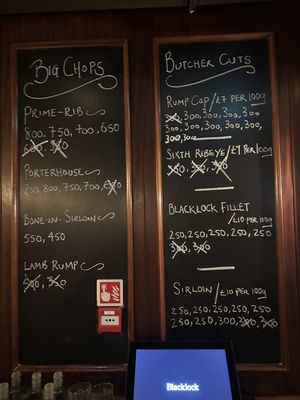 Big Chops
Prime-Rib
800, 750, 700, 650
600, 550
Porterhouse
800, 800, 750, 700,
Bone-in-Sirloin
550, 450
Lamb Rump
500,
Butcher Cuts
Rump Cap / £7 per 100g
300, 300, 300, 300,
300, 300, 300, 300, 300,
300, 300
Sixth Ribeye / £9 per 100g
300, 300, 300
Blacklock Fillet
£10 per 100g
250, 250, 250, 250, 250
300, 300
Sirloin / £10 per 100g
250, 250, 250, 250,
250, 250, 300, 300, 300
Blacklock